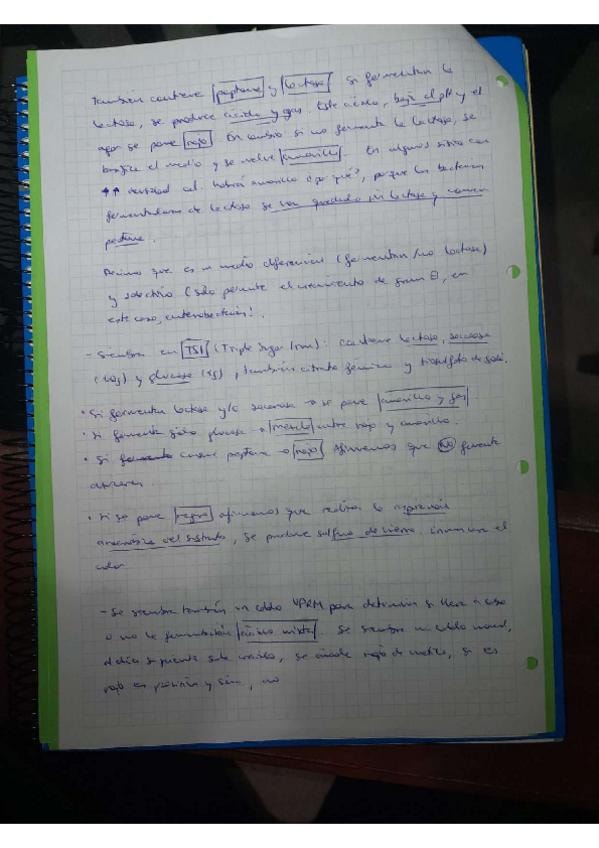 también contiene peptona y lactosa. Si fermentan la
lactosa, se produce ácido y gas. Este ácido, baja el pH y el
agar se pone rojo. En cambio si no fermenta la lactosa, se
el medio y se vuelve amarillo. En algunos sitios con
↑↑ densidad cel. habrá amarillo ¿por qué?, porque las bacterias
fermentadoras de lactosa se han quedado sin lactosa y
peptona.
Decimos que es un medio diferencial (fermentan/no lactosa)
y selectivo (sólo permite el crecimiento de gram ⊖, en
este caso, enterobacterias).
- Siembra en TSI (Triple Sugar Iron): contiene lactosa, sacarosa
y glucosa, también citrato férrico y tiosulfato de sodio.
• Si fermentan lactosa y/o sacarosa → se pone amarillo y gas.
• Si fermenta sólo glucosa → mezcla entre rojo y amarillo.
• Si peptona → rojo Afirmamos que NO fermenta
azúcares.
• Si se pone negro afirmamos que realiza la respiración
anaerobia del, se produce sulfuro de hierro. el
color
- Se siembra también en caldo para determinar si lleva a cabo
o no la fermentación ácido mixta. Se siembra en caldo normal,
el día siguiente, se añade rojo de metilo, si es
rojo es positivo y sino, no